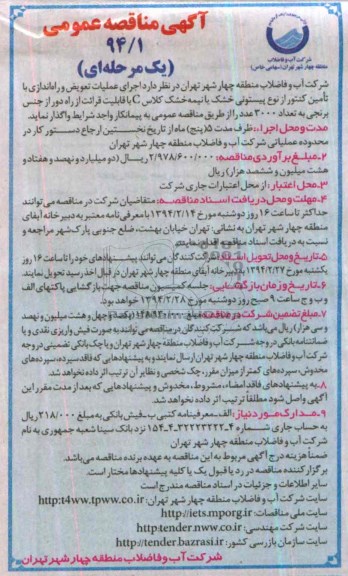 آگهی مناقصه عمومی
۹۴/۱
(یک مرحله‌ای)
شرکت آب و فاضلاب
منطقه چهار شهر تهران (سهامی خاص)
شرکت آب و فاضلاب منطقه چهار شهر تهران در نظر دارد اجرای عملیات تعویض و راه‌اندازی با
تأمین کنتور از نوع پیستونی خشک یا نیمه‌خشک کلاس C با قابلیت قرائت از راه دور از جنس
برنجی به تعداد ۳۰۰۰ عدد را از طریق مناقصه عمومی به پیمانکار واجد شرایط واگذار نماید.
مدت و محل اجرا: ظرف مدت ۵ (پنج) ماه از تاریخ نخستین ارجاع دستور کار در
محدوده عملیاتی شرکت آب و فاضلاب منطقه چهار شهر تهران
۲ـ مبلغ برآوردی مناقصه: ۲/۹۷۸/۶۰۰/۰۰۰ ریال (دو میلیارد و نهصد و هفتاد و
هشت میلیون و ششصد هزار) ریال
۳ـ محل اعتبار: از محل اعتبارات جاری شرکت
۴ـ مهلت و محل دریافت اسناد مناقصه: متقاضیان شرکت در مناقصه می‌توانند
حداکثر تا ساعت ۱۶ روز دوشنبه مورخ ۱۳۹۴/۲/۱۴ با معرفی‌نامه معتبر به دبیرخانه آبفای
منطقه چهار شهر تهران به نشانی: تهران خیابان بهشت، ضلع جنوبی پارک‌شهر مراجعه و
نسبت به دریافت اسناد مناقصه اقدام نمایند.
۵ـ تاریخ و محل تحویل اسناد: شرکت‌کنندگان می‌توانند پیشنهادهای خود را تا ساعت ۱۶ روز
یکشنبه مورخ ۱۳۹۴/۲/۲۷ به دبیرخانه آبفای منطقه چهار شهر تهران در قبال اخذ رسید تحویل نمایند.
۶ـ تاریخ و زمان بازگشایی: جلسه کمیسیون مناقصه جهت بازگشایی پاکتهای الف
و ب و ج ساعت ۹ صبح روز دوشنبه مورخ ۱۳۹۴/۲/۲۸ خواهد بود.
۷ـ مبلغ تضمین شرکت در مناقصه: (یکصد و چهل و هشت میلیون و نهصد
و سی هزار) ریال می‌باشد که شرکت‌کنندگان در مناقصه می‌توانند به صورت فیش واریزی نقدی و یا
ضمانتنامه بانکی در وجه شرکت آب و فاضلاب منطقه چهار شهر تهران و یا چک بانکی تضمینی در وجه
شرکت آب و فاضلاب منطقه چهار شهر تهران ارسال نمایند و به پیشنهادهایی که فاقد سپرده، سپرده‌های
مخدوش، سپرده‌های کمتر از میزان مقرر، چک شخصی و نظایر آن ترتیب اثر داده نخواهد شد.
۸ـ به پیشنهادهای فاقد امضاء، مشروط، مخدوش و پیشنهادهایی که بعد از مدت مقرر این
آگهی واصل شود مطلقاً ترتیب اثر داده نخواهد شد.
۹ـ مدارک مورد نیاز: الف ـ معرفی‌نامه کتبی ب ـ فیش بانکی به مبلغ ۲۱۸/۰۰۰ ریال
به حساب جاری شماره ۴ـ۳۲۲۲۳۲۲۲ـ۴ـ۱۵۴ نزد بانک سینا شعبه جمهوری به نام
شرکت آب و فاضلاب منطقه چهار شهر تهران
ضمناً هزینه درج آگهی مربوط به این مناقصه به عهده برنده مناقصه می‌باشد.
برگزارکننده مناقصه در رد یا قبول یک یا کلیه پیشنهادها مختار است.
سایر اطلاعات و جزئیات در اسناد مناقصه مندرج است
سایت شرکت آب و فاضلاب منطقه چهار شهر تهران: http:t4ww.tpww.co.ir
سایت ملی مناقصات: http://iets.mporg.ir
سایت شرکت مهندسی: http:tender.nww.co.ir
سایت سازمان بازرسی کشور: http://tender.bazrasi.ir
شرکت آب و فاضلاب منطقه چهار شهر تهران